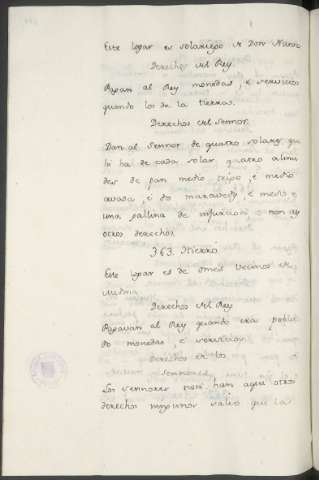 Este logar es solariego de Don Nunno
Derechos del Rey
Pagan al Rey monedas, e servicios
quando los de la tierra.
Derechos del Sennor.
Dan al Sennor de quatro solares que
y ha de cada solar quatro almu
des de pan medio trigo, e medio
cevada, e dos maravedis, e medio, e
una gallina de infurcion, e non ay
otros derechos.
363. Hierro
Este logar es de omes vecinos de
Medina
Derechos del Rey
Pagavan al Rey quando era pobla
do monedas, e servicios.
Derechos de los
Sennores
Los Sennores non han aqui otros
derechos ningunos salvo que la